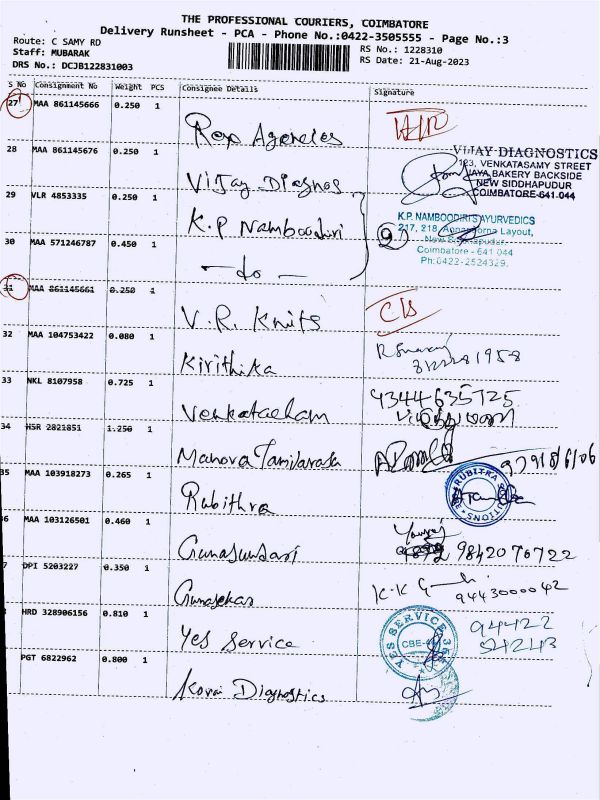 THE PROFESSIONAL COURIERS, COIMBATORE
Delivery Runsheet - PCA - Phone No.:0422-3505555 - Page No.:3
Route: C SAMY RD
Staff: MUBARAK
RS No.: 1228310
DRS No.: DCJB122831003
RS Date: 21-Aug-2023
S No Consignment No Weight PCS Consignee Details Signature
27 MAA 861145666 0.250 1
Rex Agencies
28 MAA 861145676 0.250 1
Vijay Diagnos
VIJAY DIAGNOSTICS
123, VENKATASAMY STREET
JAYA BAKERY BACKSIDE
NEW SIDDHAPUDUR
COIMBATORE-641 044
29 VLR 4853335 0.250 1
K.P Namboodiri
K.P. NAMBOODIRI'S AYURVEDICS
217, 218, Annapoorna Layout,
New Siddhapudur,
Coimbatore - 641 044
Ph:0422-2524329.
30 MAA 571246787 0.450 1
— do —
31 MAA 861145661 0.250 1
V.R. Knits
32 MAA 104753422 0.080 1
Kirithika
33 NKL 8107958 0.725 1
Venkatacham
9344635725
34 HSR 2821851 1.250 1
Manova Tamilarasa
35 MAA 103918273 0.265 1
Rubithra
36 MAA 103126501 0.460 1
Gunasundari
9842076722
7 DPI 5203227 0.350 1
Gunasekar
K.K
9443000042
HRD 328906156 0.810 1
Yes Service
YES SERVICE 360
CBE-
94422
PGT 6822962 0.800 1
Kovai Diagnostics